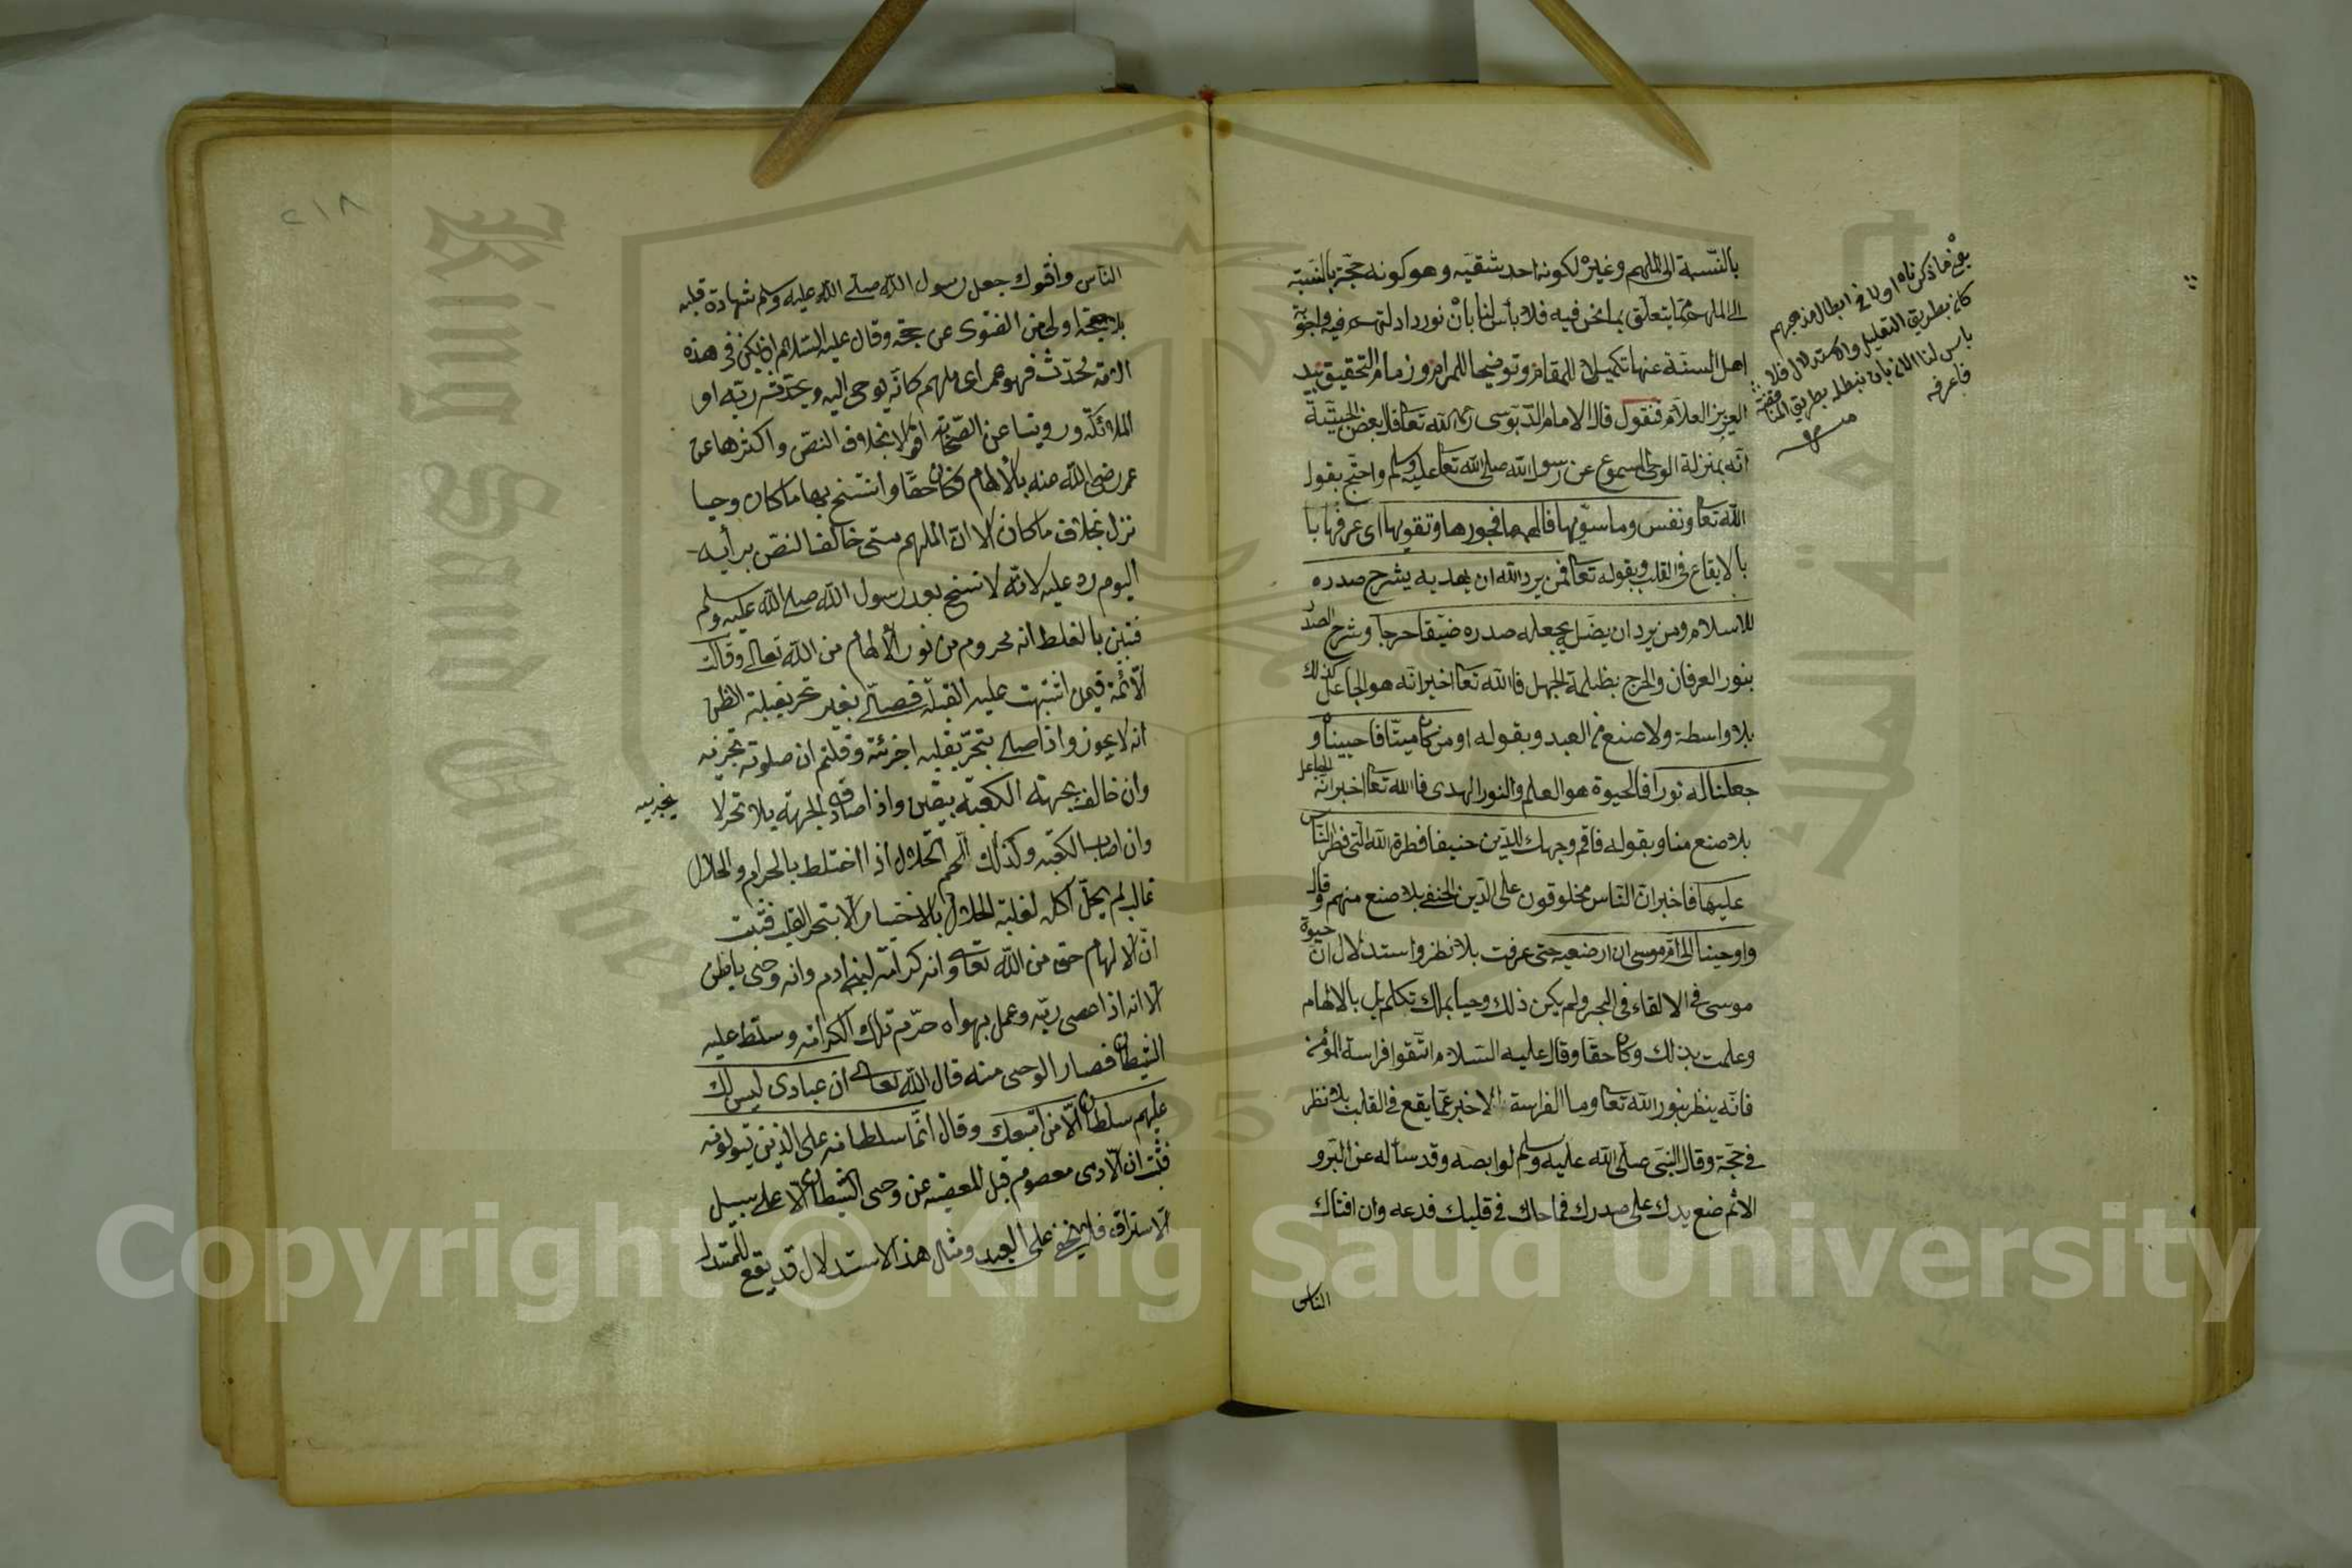 بالنّسبة الى الملهم وغيره لكونه احد شقيه وهو كونه حجّة بالنّسبة
الى الملهم ممّا يتعلّق بما نحن فيه فلا بأس لنا بأن نورد ادلتهم فيه واجوبة
اهل السنّة عنها تكميلا للمقام وتوضيحا للمرام وزمام التحقيق بيد
العزيز العلاّم فنقول قال الامام الدّبوسى رحمه الله تعالى قال بعض الحبيّة
انّه بمنزلة الوحى المسموع عن رسول الله صلى الله تعالى عليه وسلم واحتج بقول
الله تعالى ونفس وما سوّيها فالهمها فجورها وتقويها اى عرفها با
بالايقاع فى القلب وبقوله تعالى فمن يرد الله ان يهديه يشرح صدره
للاسلام ومن يرد ان يضلّه يجعله صدره ضيّقا حرجا وشرح الصدر
بنور العرفان والحرج بظلمة الجهل فالله تعالى اخبر انّه هو الجاعل كذلك
بلا واسطة ولا صنع من العبد وبقوله او من كان ميتا فاحييناه و
جعلنا له نورا فالحيوة هو العلم والنور الهدى فالله تعالى اخبر انّه الجاعل
بلا صنع منا وبقوله فاقم وجهك للدّين حنيفا فطرة الله التى فطر النّاس
عليها فاخبر ان النّاس مخلوقون على الدّين الحنفى بلا صنع منهم وقال
واوحينا الى امّ موسى ان ارضعيه حتى عرفت بلا نظر واستدلال ان حيوة
موسى فى الالقاء فى البحر ولم يكن ذلك وحيا بملك تكلم بل بالالهام
وعلمت بذلك وكان حقّا وقال عليه السّلام اتّقوا فراسة المؤمن
فانّه ينظر بنور الله تعالى وما الفراسة الا خبر عمّا يقع فى القلب بلا نظر
فى حجّة وقال النبى صلى الله عليه وسلم لوابصه وقد سأله عن البرّ و
الاثم ضع يدك على صدرك فما حاك فى قلبك فدعه وان افتاك
الناس
يعنى ما ذكرناه اولا فى ابطال مذهبهم
كان بطريق التعليل والاستدلال فلا
باس لنا الان بان نبطله بطريق المناقضة
فاعرفه
منه
٢١٨
الناس وافتوك جعل رسول الله صلى الله عليه وسلم شهادة قلبه
بلا حجّة اولى من الفتوى عن حجّة وقال عليه السّلام ان يكن فى هذه
الامّة محدّث فهو عمر اى ملهم كانّه يوحى اليه ويحدّثه ربّه او
الملائكة وروينا عن الصّحابة اقوالا بخلاف النصّ واكثرها عن
عمر رضى الله عنه بالالهام فكان حقّا وانتسخ بها ما كان وحيا
نزل بخلاف ما كان الا ان الملهم متى خالف النصّ برأيه
اليوم ردّ عليه لانّه لا نسخ بعد رسول الله صلى الله عليه وسلم
فتبيّن بالغلط انه محروم من نور الالهام من الله تعالى وقالت
الائمّة فيمن اشتبهت عليه القبلة فصلّى بغير تحر بقلبه الظنّ
انه لا يجوز واذا صلى بتحرّ بقلبه اجزئته وقلتم ان صلوته تجزيه
وان خالف جهة الكعبة بيقين واذا صادف الجهة بلا تحر لا
يجزيه
وان اصاب الكعبة وكذلك اللحم الحلال اذا اختلط بالحرام والحلال
غالب لم يحلّ اكله لغلبة الحلال بالاختيار الا بتحر القلب فثبت
انّ الالهام حق من الله تعالى وانه كرامة لبنى ادم وانه وحى باطن
الا انه اذا عصى ربّه وعمل بهواه حرّم تلك الكرامة وسلّط عليه
الشيطان فصار الوحى منه قال الله تعالى ان عبادى ليس لك
عليهم سلطان الّا من اتبعك وقال انّما سلطانه على الذين يتولونه
فثبت ان الآدمى معصوم قبل المعصية عن وحى الشيطان الا على سبيل
الاستراق فلا يخفى على العبد ومثل هذا الاستدلال قد يقع للمستدل
Copyright © King Saud University
King Saud University
1957